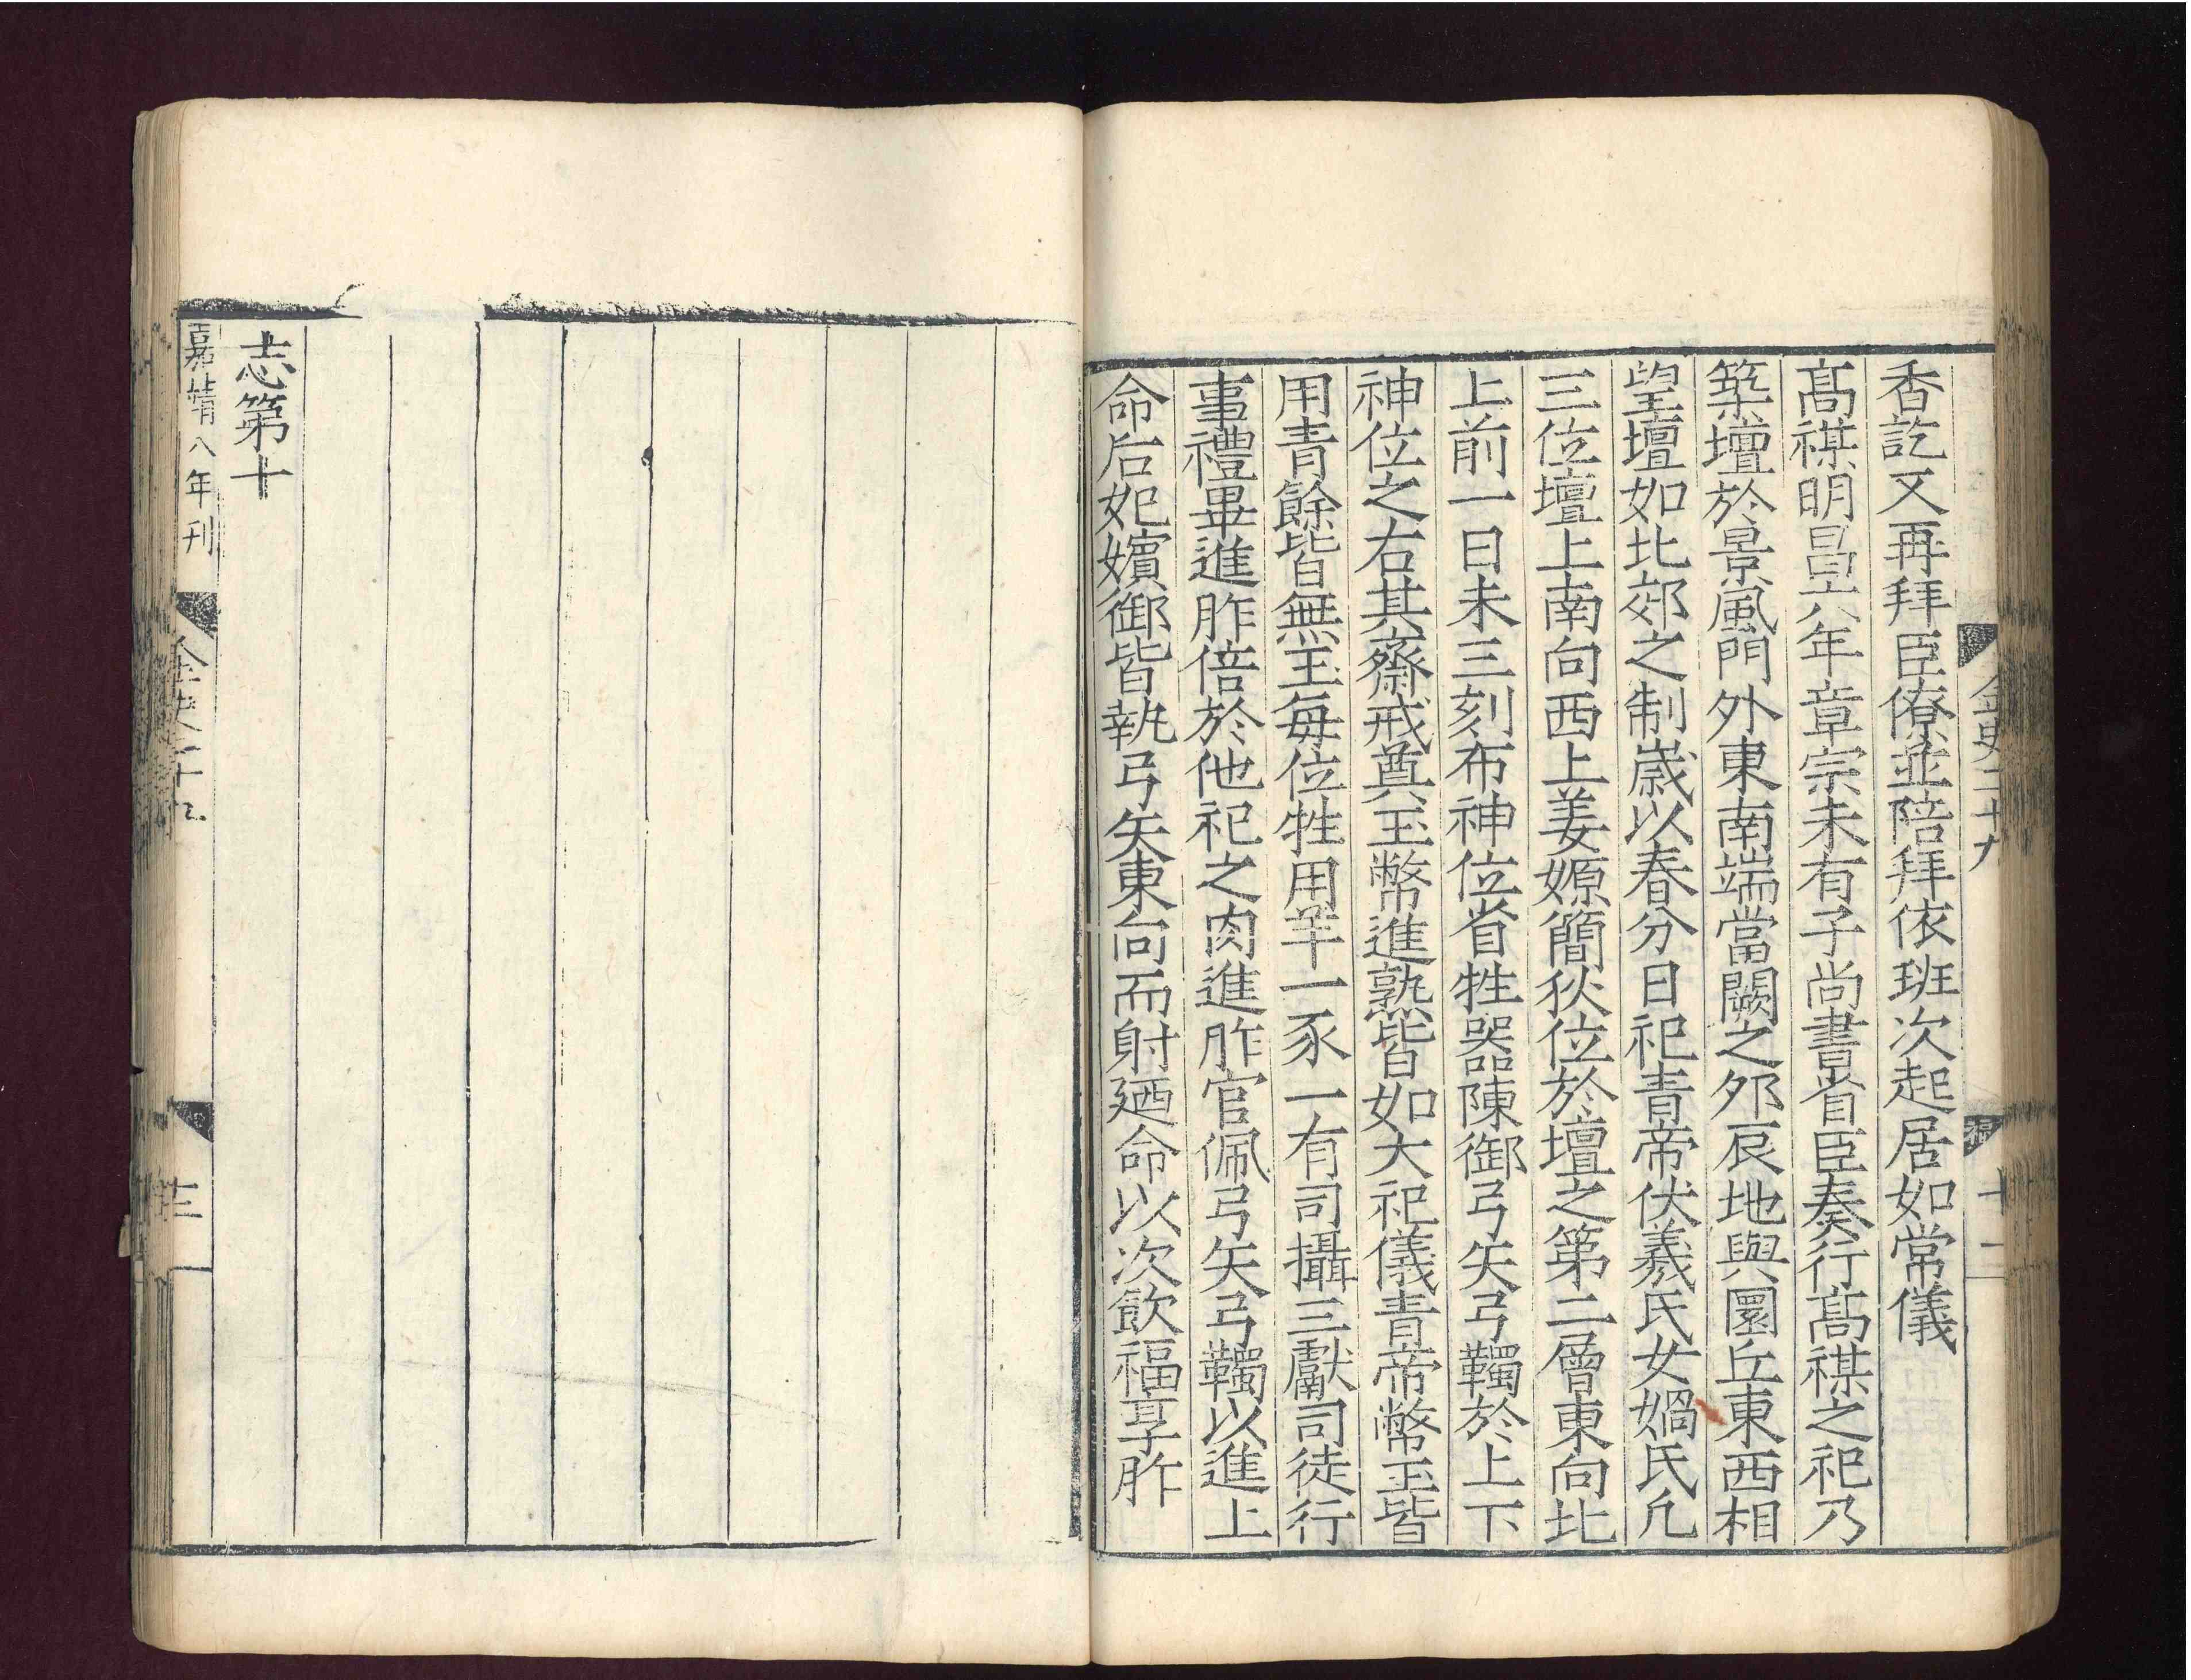 金史二十九
福
十二
香訖又再拜臣僚並陪拜依班次起居如常儀
髙禖明昌六年章宗未有子尚書省臣奏行髙禖之祀乃
築壇於景風門外東南端當闕之夘辰地與圜丘東西相
望壇如北郊之制歲以春分日祀青帝伏羲氏女媧氏凡
三位壇上南向西上姜嫄簡狄位於壇之第二層東向北
上前一日未三刻布神位省牲器陳御弓矢弓韣於上下
神位之右其齋戒奠玉幣進熟皆如大祀儀青帝幣玉皆
用青餘皆無玉每位牲用羊一豕一有司攝三獻司徒行
事禮畢進胙倍於他祀之肉進胙官佩弓矢弓韣以進上
命后妃嬪御皆執弓矢東向而射廼命以次飲福享胙
志第十
嘉靖八年刊
金史二十九
十三